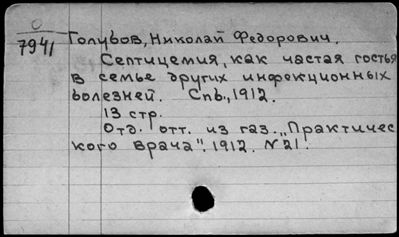 О
7941
Голубов, Николай Федорович.
Септицемия, как частая гостья
в семье других инфекционных
болезней. Спб., 1912.
13 стр.
Отд. отт. из газ. „Практичес
кого врача". 1912. N 21.